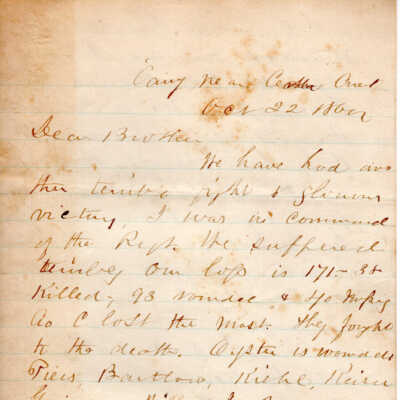 Camp near Cedar Creek
Oct 22 1864
Dear Brother
We have had ano
ther terrible fight & glorious
victory, I was in command
of the Regt. We suffered
terribly our loss is 171 - 38
Killed - 93 wounded & 40 missing
Co C lost the most. They fought
to the death. Oyster is wounded
Piers, Barlow, Kiehl,